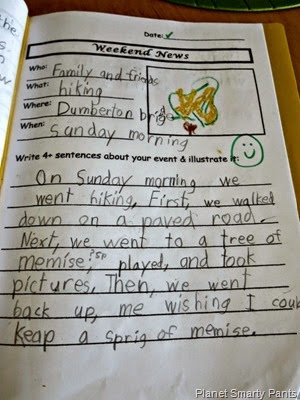 Date:
Weekend News
Who: Family and friends
What: hiking
Where: Dumberton brige
When: Sunday morning
Write 4+ sentences about your event & illustrate it:
On Sunday morning we
went hiking, First, we walked
down on a paved road.
Next, we went to a tree of
memise,?sp played, and took
pictures, Then, we went
back up, me wishing I coul
keap a sprig of memise.
Planet Smarty Pants